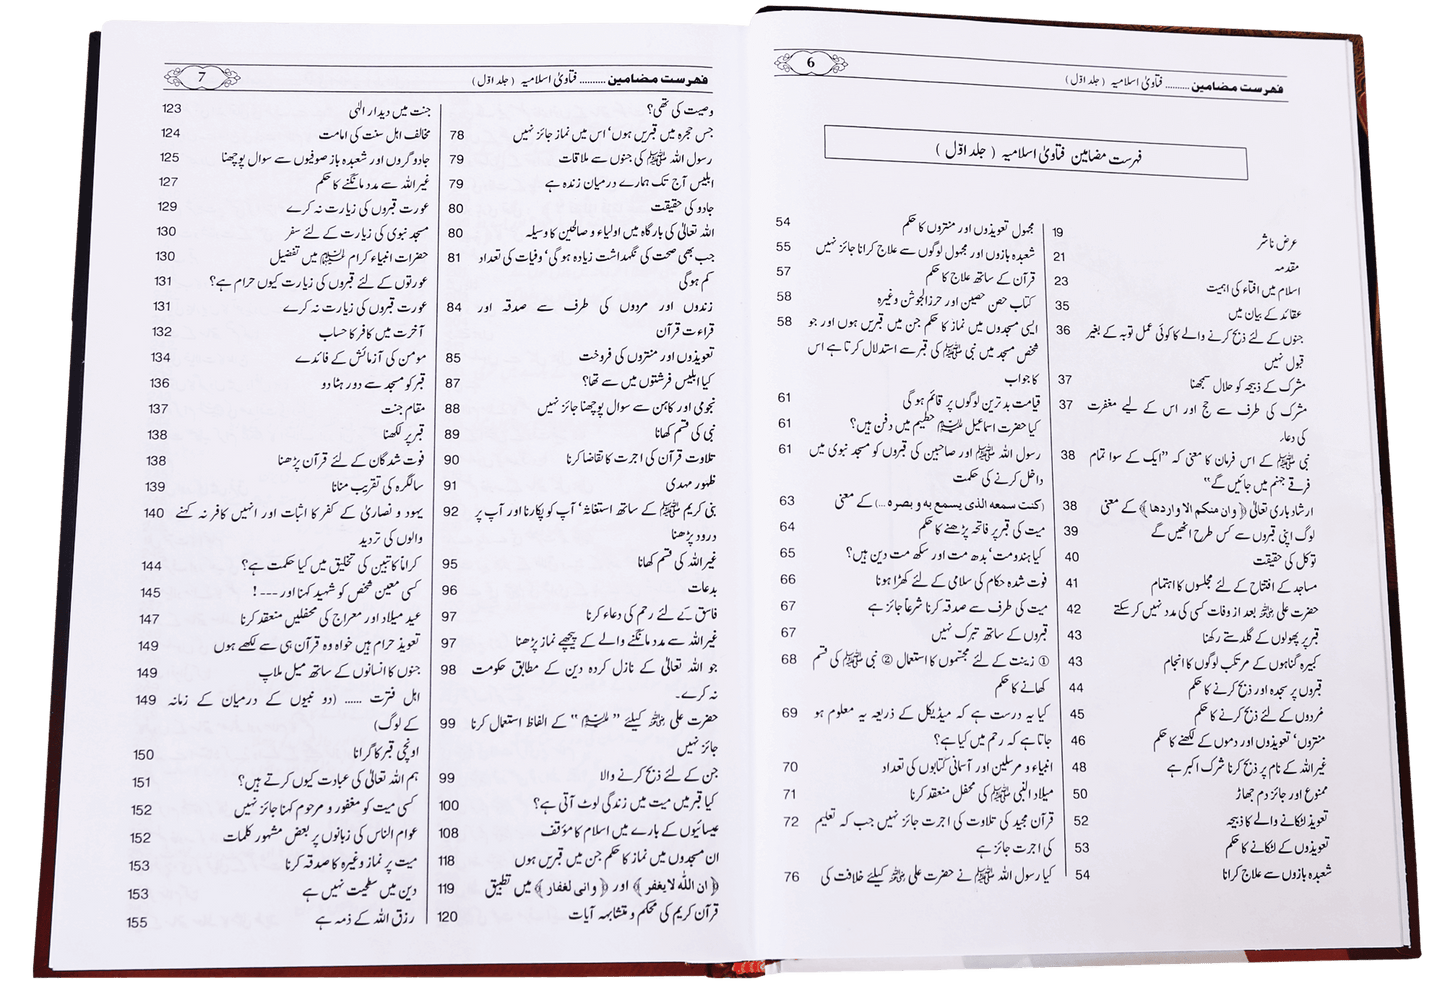 6
فہرست مضامین .......... فتاویٰ اسلامیہ ( جلد اوّل)
فہرست مضامین فتاویٰ اسلامیہ ( جلد اوّل )
عرض ناشر 19
مقدمہ 21
اسلام میں افتاء کی اہمیت 23
عقائد کے بیان میں 35
جنوں کے لئے ذبح کرنے والے کا کوئی عمل توبہ کے بغیر 36
قبول نہیں
مشرک کے ذبیحہ کو حلال سمجھنا 37
مشرک کی طرف سے حج اور اس کے لیے مغفرت 37
کی دعار
نبی ﷺ کے اس فرمان کا معنی کہ ”ایک کے سوا تمام 38
فرقے جہنم میں جائیں گے“
ارشاد باری تعالیٰ ﴿وان منکم الا واردھا﴾ کے معنی 38
لوگ اپنی قبروں سے کس طرح اٹھیں گے 39
توکل کی حقیقت 40
مساجد کے افتتاح کے لئے مجلسوں کا اہتمام 41
حضرت علی رضی اللہ عنہ بعد از وفات کسی کی مدد نہیں کر سکتے 42
قبر پر پھولوں کے گلدستے رکھنا 43
کبیرہ گناہوں کے مرتکب لوگوں کا انجام 43
قبروں پر سجدہ اور ذبح کرنے کا حکم 44
مُردوں کے لئے ذبح کرنے کا حکم 45
منتروں‘ تعویذوں اور دموں کے لکھنے کا حکم 46
غیر اللہ کے نام پر ذبح کرنا شرک اکبر ہے 48
ممنوع اور جائز دم جھاڑ 50
تعویذ لٹکانے والے کا ذبیحہ 52
تعویذوں کے لٹکانے کا حکم 53
شعبدہ بازوں سے علاج کرانا 54
مجہول تعویذوں اور منتروں کا حکم 54
شعبدہ بازوں اور مجہول لوگوں سے علاج کرانا جائز نہیں 55
قرآن کے ساتھ علاج کا حکم 57
کتاب حصن حصین اور حرز الجوشن وغیرہ 58
ایسی مسجدوں میں نماز کا حکم جن میں قبریں ہوں اور جو 58
شخص مسجد میں نبی ﷺ کی قبر سے استدلال کرتا ہے اس
کا جواب
قیامت بدترین لوگوں پر قائم ہو گی 61
کیا حضرت اسماعیل علیہ السلام حطیم میں دفن ہیں؟ 61
رسول اللہ ﷺ اور صاحبین کی قبروں کو مسجد نبوی میں 61
داخل کرنے کی حکمت
(کنت سمعہ الذی یسمع بہ و بصرہ ...) کے معنی 63
میت کی قبر پر فاتحہ پڑھنے کا حکم 64
کیا ہندومت‘ بدھ مت اور سکھ مت دین ہیں؟ 65
فوت شدہ حکام کی سلامی کے لئے کھڑا ہونا 66
میت کی طرف سے صدقہ کرنا شرعاً جائز ہے 67
قبروں کے ساتھ تبرک نہیں 67
① زینت کے لئے مجسموں کا استعمال ② نبی ﷺ کی قسم 68
کھانے کا حکم
کیا یہ درست ہے کہ میڈیکل کے ذریعہ یہ معلوم ہو 69
جاتا ہے کہ رحم میں کیا ہے؟
انبیاء و مرسلین اور آسمانی کتابوں کی تعداد 70
میلاد النبی ﷺ کی محفل منعقد کرنا 71
قرآن مجید کی تلاوت کی اجرت جائز نہیں جب کہ تعلیم 72
کی اجرت جائز ہے
کیا رسول اللہ ﷺ نے حضرت علی رضی اللہ عنہ کیلئے خلافت کی 76
7
فہرست مضامین .......... فتاویٰ اسلامیہ ( جلد اوّل)
وصیت کی تھی؟
جس حجرہ میں قبریں ہوں‘ اس میں نماز جائز نہیں 78
رسول اللہ ﷺ کی جنوں سے ملاقات 79
ابلیس آج تک ہمارے درمیان زندہ ہے 79
جادو کی حقیقت 80
اللہ تعالیٰ کی بارگاہ میں اولیاء و صالحین کا وسیلہ 80
جب بھی صحت کی نگہداشت زیادہ ہو گی‘ وفیات کی تعداد 81
کم ہو گی
زندوں اور مردوں کی طرف سے صدقہ اور 84
قراءت قرآن
تعویذوں اور منتروں کی فروخت 85
کیا ابلیس فرشتوں میں سے تھا؟ 87
نجومی اور کاہن سے سوال پوچھنا جائز نہیں 88
نبی کی قسم کھانا 89
تلاوت قرآن کی اجرت کا تقاضا کرنا 90
ظہور مہدی 91
نبی کریم ﷺ کے ساتھ استغاثہ‘ آپ کو پکارنا اور آپ پر 92
درود پڑھنا
غیر اللہ کی قسم کھانا 95
بدعات 96
فاسق کے لئے رحم کی دعاء کرنا 97
غیر اللہ سے مدد مانگنے والے کے پیچھے نماز پڑھنا 97
جو اللہ تعالیٰ کے نازل کردہ دین کے مطابق حکومت 98
نہ کرے۔
حضرت علی رضی اللہ عنہ کیلئے ”علیہ السلام“ کے الفاظ استعمال کرنا 99
جائز نہیں
جن کے لئے ذبح کرنے والا 99
کیا قبر میں میت میں زندگی لوٹ آتی ہے؟ 100
عیسائیوں کے بارے میں اسلام کا مؤقف 108
ان مسجدوں میں نماز کا حکم جن میں قبریں ہوں 118
﴿ان اللہ لا یغفر﴾ اور ﴿وانی لغفار﴾ میں تطبیق 119
قرآن کریم کی محکم و متشابہہ آیات 120
جنت میں دیدار الٰہی 123
مخالف اہل سنت کی امامت 124
جادوگروں اور شعبدہ باز صوفیوں سے سوال پوچھنا 125
غیر اللہ سے مدد مانگنے کا حکم 127
عورت قبروں کی زیارت نہ کرے 129
مسجد نبوی کی زیارت کے لئے سفر 130
حضرات انبیاء کرام علیہم السلام میں تفضیل 130
عورتوں کے لئے قبروں کی زیارت کیوں حرام ہے؟ 131
عورت قبروں کی زیارت نہ کرے 131
آخرت میں کافر کا حساب 132
مومن کی آزمائش کے فائدے 134
قبر کو مسجد سے دور ہٹا دو 136
مقام جنت 137
قبر پر لکھنا 138
فوت شدگان کے لئے قرآن پڑھنا 138
سالگرہ کی تقریب منانا 139
یہود و نصاریٰ کے کفر کا اثبات اور انہیں کافر نہ کہنے 140
والوں کی تردید
کراماً کاتبین کی تخلیق میں کیا حکمت ہے؟ 144
کسی معین شخص کو شہید کہنا اور --- ! 145
عید میلاد اور معراج کی محفلیں منعقد کرنا 147
تعویذ حرام ہیں خواہ وہ قرآن ہی سے لکھے ہوں 149
جنوں کا انسانوں کے ساتھ میل ملاپ 149
اہل فترت ...... (دو نبیوں کے درمیان کے زمانہ 149
کے لوگ)
اونچی قبر کا گرانا 150
ہم اللہ تعالیٰ کی عبادت کیوں کرتے ہیں؟ 151
کسی میت کو مغفور و مرحوم کہنا جائز نہیں 152
عوام الناس کی زبانوں پر بعض مشہور کلمات 152
میت پر نماز وغیرہ کا صدقہ کرنا 153
دین میں سطحیت نہیں ہے 153
رزق اللہ کے ذمہ ہے 155